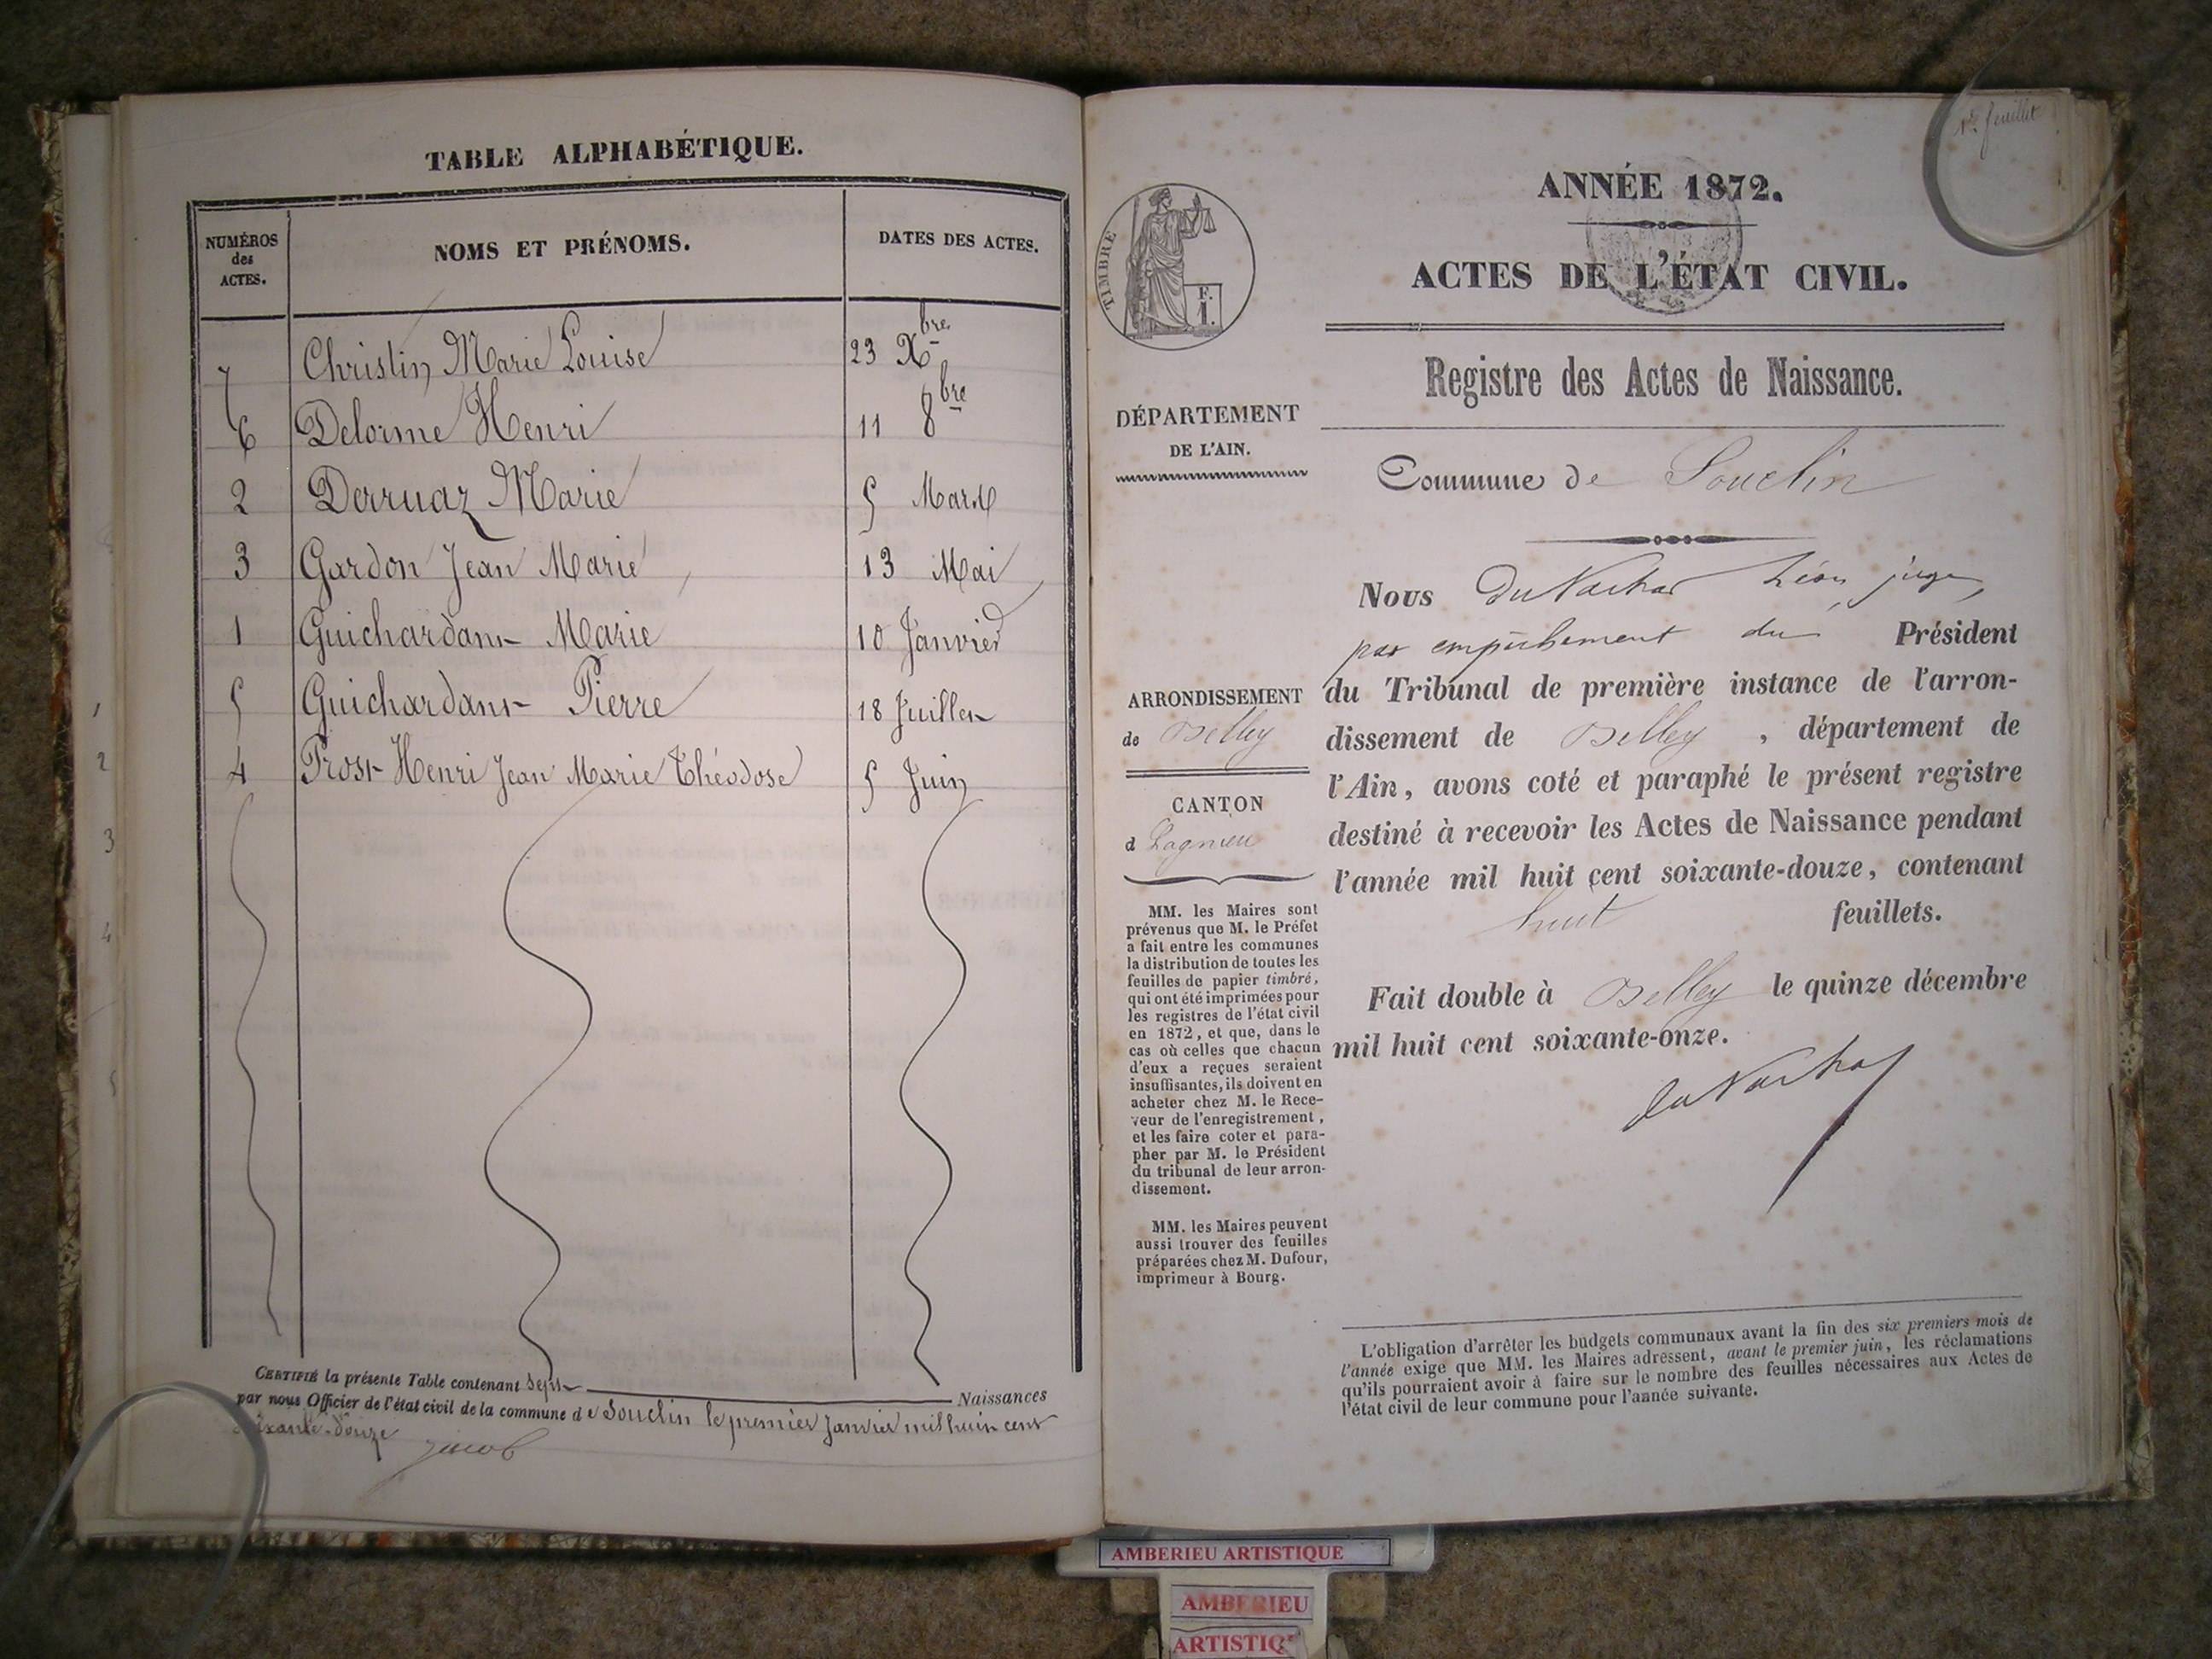 TABLE ALPHABÉTIQUE.
NUMÉROS des ACTES.
NOMS ET PRÉNOMS.
DATES DES ACTES.
7 Christin Marie Louise 23 Xbre
6 Delorme Henri 11 8bre
2 Derruaz Marie 5 Mars
3 Gardon Jean Marie 13 Mai
1 Guichardant Marie 10 Janvier
5 Guichardant Pierre 18 Juillet
4 Prost Henri Jean Marie Théodose 5 Juin
CERTIFIÉ la présente Table contenant Sept Naissances
par nous Officier de l'état civil de la commune de Souclin le premier Janvier mil huit cent
soixante-douze
Jacob
1
2
3
4
5
1er feuillet
TIMBRE
F.
1.
ANNÉE 1872.
ACTES DE L'ÉTAT CIVIL.
Registre des Actes de Naissance.
DÉPARTEMENT
DE L'AIN.
Commune de Souclin
Nous Léon juge,
par empêchement du Président
ARRONDISSEMENT
de Belley
du Tribunal de première instance de l'arron-
dissement de Belley, département de
l'Ain, avons coté et paraphé le présent registre
destiné à recevoir les Actes de Naissance pendant
l'année mil huit cent soixante-douze, contenant
huit feuillets.
CANTON
d Lagnieu
Fait double à Belley le quinze décembre
mil huit cent soixante-onze.
MM. les Maires sont
prévenus que M. le Préfet
a fait entre les communes
la distribution de toutes les
feuilles de papier timbré,
qui ont été imprimées pour
les registres de l'état civil
en 1872, et que, dans le
cas où celles que chacun
d'eux a reçues seraient
insuffisantes, ils doivent en
acheter chez M. le Rece-
veur de l'enregistrement,
et les faire coter et para-
pher par M. le Président
du tribunal de leur arron-
dissement.
MM. les Maires peuvent
aussi trouver des feuilles
préparées chez M. Dufour,
imprimeur à Bourg.
L'obligation d'arrêter les budgets communaux avant la fin des six premiers mois de
l'année exige que MM. les Maires adressent, avant le premier juin, les réclamations
qu'ils pourraient avoir à faire sur le nombre des feuilles nécessaires aux Actes de
l'état civil de leur commune pour l'année suivante.
AMBERIEU ARTISTIQUE
AMBERIEU
ARTISTIQ